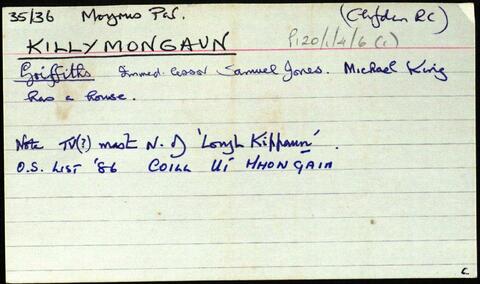 35/36 Moyrus Par. (Clifden RC)
KILLYMONGAUN P120/1/4/6 (i)
Griffiths Immed. lessor Samuel Jones. Michael King
has a house.
Note TV(?) mast N. of 'Lough Kippaun'.
O.S. LIST '86 COILL UÍ MHONGAIN
C